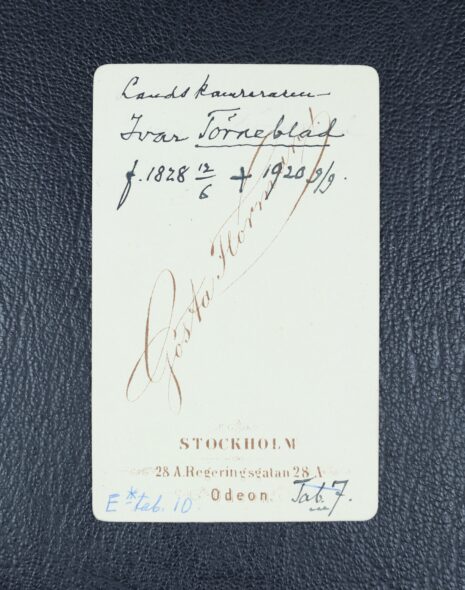 Landskamreraren
Ivar Törneblad
f. 1828 12/6 + 1920 9/9.
Gösta Florman
STOCKHOLM
28 A. Regeringsgatan 28 A
Odeon.
Tab. 7.
E* tab. 10